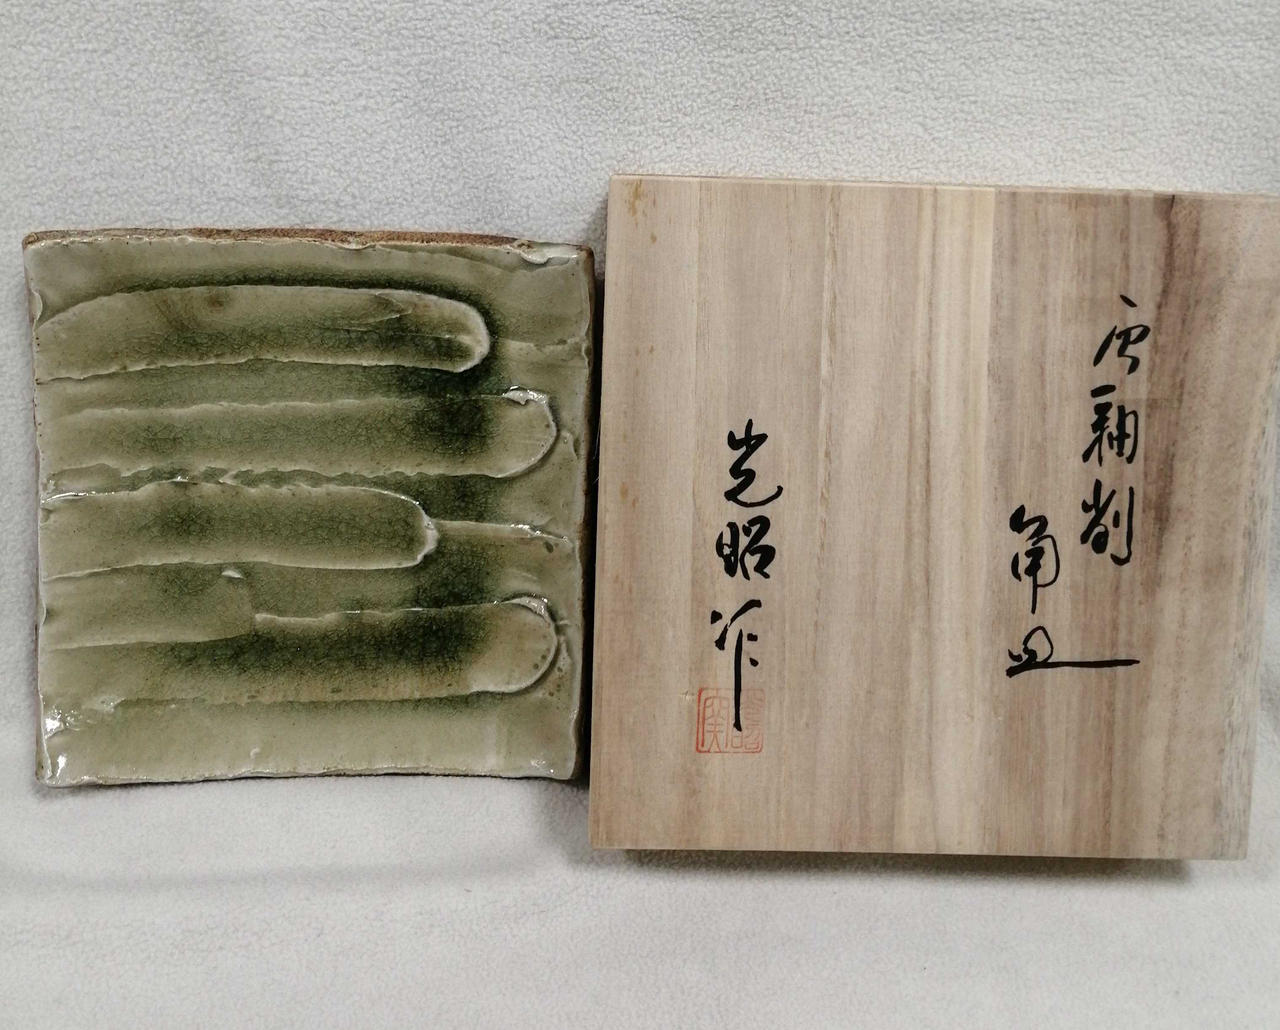 唐釉削
角皿
光昭作